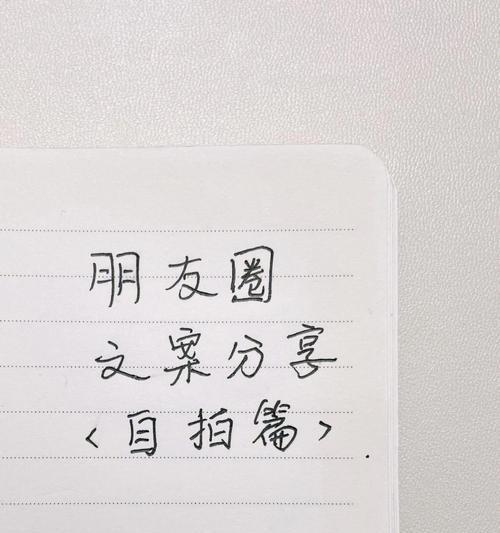 朋友圈
文案分享
<自拍篇>